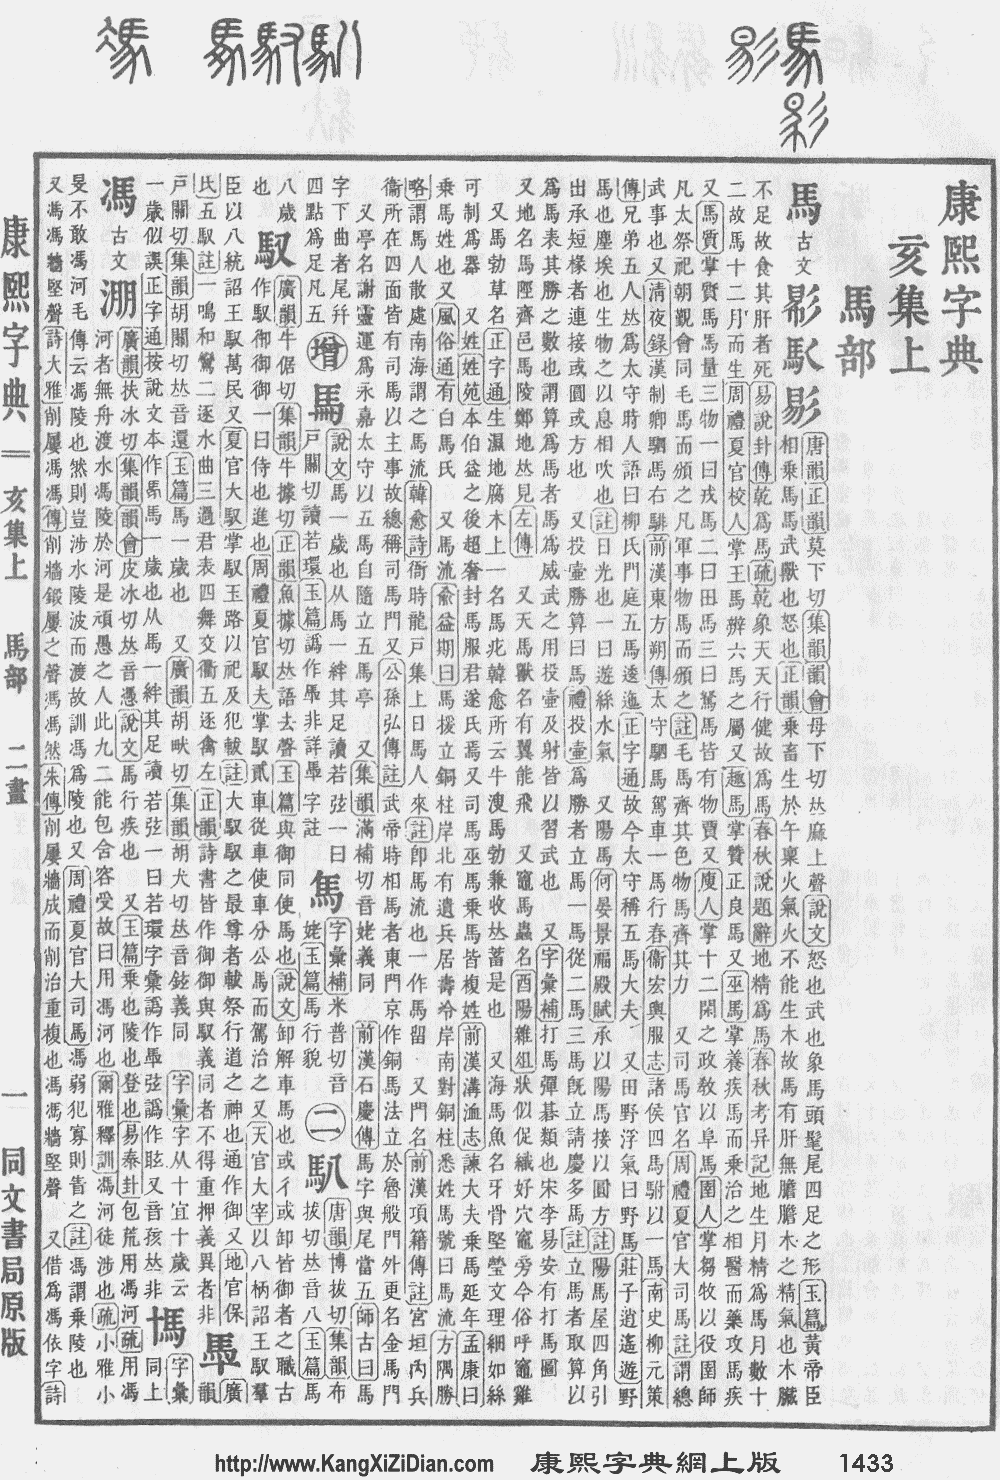 康熙字典
亥集上
馬部
馬 古文 𢒠 𢒗 影
唐韻正韻莫下切集韻韻會母下切𠀤麻上聲說文怒也武也象馬頭髦尾四足之形玉篇黃帝臣
相乘馬馬武獸也怒也正韻乘畜生於午稟火氣火不能生木故馬有肝無膽膽木之精氣也木臟
不足故食其肝者死易說卦傳乾爲馬疏乾象天天行健故爲馬春秋說題辭地精爲馬春秋考异記地生月精爲馬月數十
二故馬十二月而生周禮夏官校人掌王馬辨六馬之屬又趣馬掌贊正良馬又巫馬掌養疾馬而乘治之相醫而藥攻馬疾
又馬質掌質馬馬量三物一曰戎馬二曰田馬三曰駑馬皆有物賈又廋人掌十二閑之政敎以阜馬圉人掌芻牧以役圉師
凡太祭祀朝覲會同毛馬而頒之凡軍事物馬而頒之註毛馬齊其色物馬齊其力 又司馬官名周禮夏官大司馬註謂總
武事也又淸夜錄漢制卿駟馬右騑前漢東方朔傳太守駟馬駕車一馬行春衞宏輿服志諸侯四馬駙以一馬南史柳元策
傳兄弟五人𠀤爲太守時人語曰柳氏門庭五馬逶迤正字通故今太守稱五馬大夫 又田野浮氣曰野馬莊子逍遙遊野
馬也塵埃也生物之以息相吹也註日光也一曰遊絲水氣 又陽馬何晏景福殿賦承以陽馬接以圓方註陽馬屋四角引
出承短椽者連接或圓或方也 又投壷勝算曰馬禮投壷爲勝者立馬一馬從二馬三馬旣立請慶多馬註立馬者取算以
爲馬表其勝之數也謂算爲馬者馬爲威武之用投壷及射皆以習武也 又字彙補打馬彈碁類也宋李易安有打馬圖
又地名馬陘齊邑馬陵鄭地𠀤見左傳 又天馬獸名有翼能飛 又竈馬蟲名酉陽雜俎狀似促織好穴竈旁今俗呼竈雞
又馬勃草名正字通生濕地腐木上一名馬疕韓愈所云牛溲馬勃兼收𠀤蓄是也 又海馬魚名牙骨堅瑩文理細如絲
可制爲器 又姓姓苑本伯益之後趙奢封馬服君遂氏焉又司馬巫馬乘馬皆複姓前漢溝洫志諫大夫乘馬延年孟康曰
乘馬姓也又風俗通有白馬氏 又馬流兪益期曰馬援立銅柱岸北有遺兵居壽泠岸南對銅柱悉姓馬號曰馬流方隅勝
略謂馬人散處南海謂之馬流韓愈詩衙時龍戸集上日馬人來註卽馬流也一作馬留 又門名前漢項籍傳註宮垣內兵
衞所在四面皆有司馬以主事故總稱司馬門又公孫弘傳註武帝時相馬者東門京作銅馬法立於魯般門外更名金馬門
又亭名謝靈運爲永嘉太守以五馬自隨立五馬亭 又集韻滿補切音姥義同 前漢石慶傳馬字與尾當五師古曰馬
字下曲者尾幷
四點爲足凡五
增 𩡧
說文馬一歲也从馬一絆其足讀若弦一曰
戸關切讀若環玉篇譌作𩡬非詳𩡬字註
𩡨
字彙補米普切音
姥玉篇馬行貌
二 馴
唐韻博拔切集韻布
拔切𠀤音八玉篇馬
八歲
也
馭
廣韻牛倨切集韻牛據切正韻魚據切𠀤語去聲玉篇與御同使馬也說文卸解車馬也或彳或卸皆御者之職古
作馭御御御一曰侍也進也周禮夏官馭夫掌馭貳車從車使車分公馬而駕治之又天官大宰以八柄詔王馭羣
臣以八統詔王馭萬民又夏官大馭掌馭玉路以祀及犯軷註大馭馭之最尊者軷祭行道之神也通作御又地官保
氏五馭註一鳴和鸞二逐水曲三過君表四舞交衢五逐禽左正韻詩書皆作御御與馭義同者不得重押義異者非
𩡬
廣韻
戸關切集韻胡關切𠀤音還玉篇馬一歲也 又廣韻胡畎切集韻胡犬切𠀤音鉉義同 字彙字从十宜十歲云
一歲似誤正字通按說文本作𩡧馬一歲也从馬一絆其足讀若弦一曰若環字彙譌作𩡬弦譌作眩又音孩𠀤非
𢡗
同上
字彙
馮 古文 淜
廣韻扶冰切集韻韻會皮冰切𠀤音憑說文馬行疾也 又玉篇乘也陵也登也易泰卦包荒用馮河疏用馮
河者無舟渡水馮陵於河是頑愚之人此九二能包含容受故曰用馮河也爾雅釋訓馮河徒涉也疏小雅小
旻不敢馮河毛傳云馮陵也然則豈涉水陵波而渡故訓馮爲陵也又周禮夏官大司馬馮弱犯寡則眚之註馮謂乘陵也
又馮馮牆堅聲詩大雅削屢馮馮傳削牆鍛屢之聲馮馮然朱傳削屢牆成而削治重複也馮馮牆堅聲 又借爲馮依字詩
康熙字典 亥集上 馬部 二畫 一 同文書局原版
http://www.KangXiZiDian.com 康熙字典網上版 1433